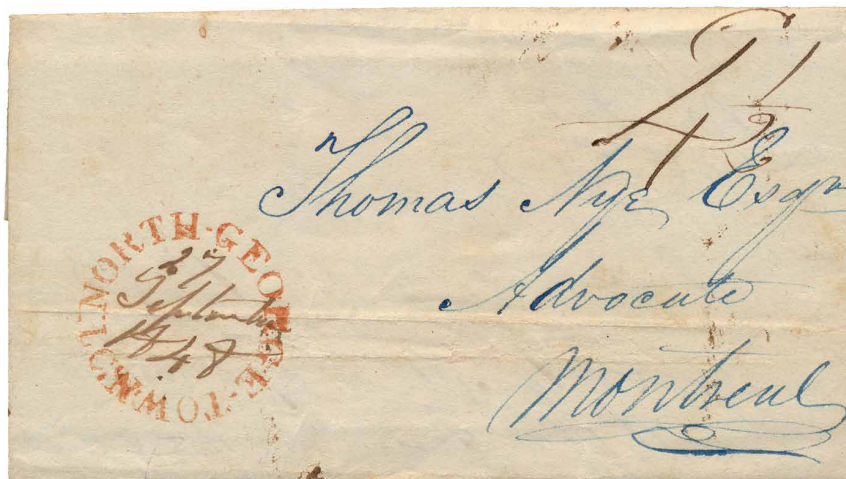 4½
Thomas Nye Esqr
Advocate
Montreal
NORTH-GEORGE-TOWN
27
September
1848